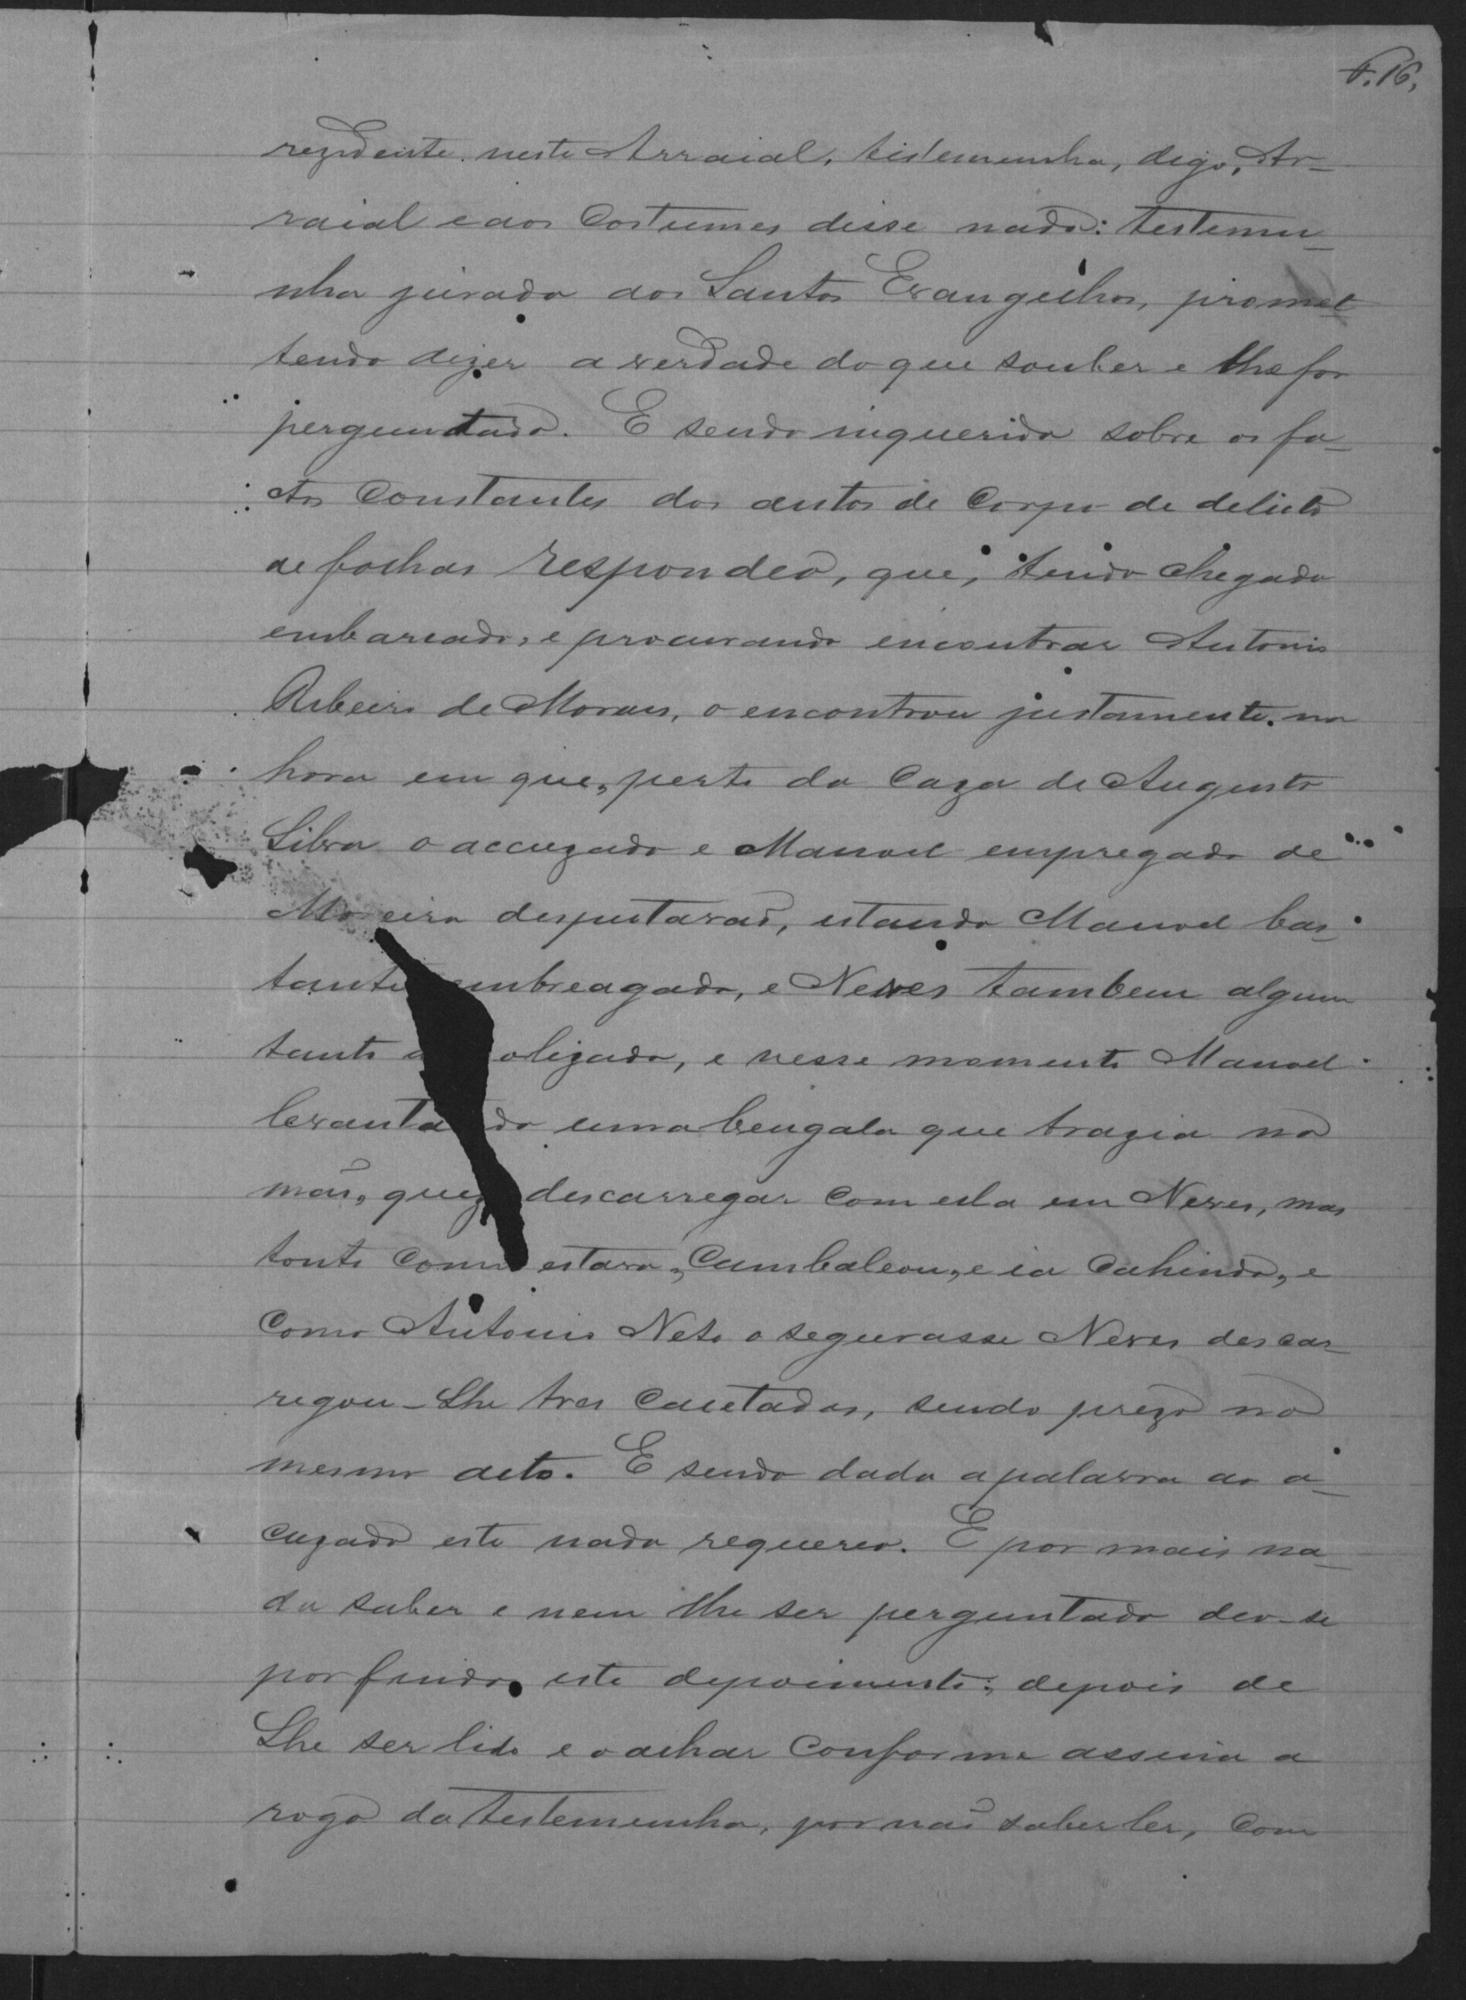 f. 16.
rezidente neste Arraial, testemunha, digo, Ar-
raial e aos Costumes disse nada: testemu-
nha jurada aos Santos Evangelhos, promet
tendo dizer a verdade do que souber e lhe for
perguntado. E sendo inquerida sobre os fa-
ctos Constantes dos autos de Corpo de delicto
de folhas respondeo, que, tendo chegado
embarcado, e procurando encontrar Antonio
Ribeiro de Moraes, o encontrou justamente na
hora em que, perto da Caza de Augusto
Silva o accuzado e Manoel empregado de
Moreira desputavaõ, estando Manoel bas-
tante embreagado, e Neves tambem algum
tanto a olizado, e nesse momento Manoel
levanta do uma bengala que trazia na
maõ, quez descarregar com ella em Neves, mas
tonto como estava, Cambaleou, e ia Cahindo, e
Como Antonio Neto o segurasse Neves descar-
regou-lhe tres Cacetadas, sendo prezo no
mesmo acto. E sendo dada a palavra ao a-
cuzado este nada requereo. E por mais na-
da saber e nem lhe ser perguntado deo-se
por findo este depoimento; depois de
lhe ser lido e o achar Conforme assina a
rogo da testemunha, por naõ saber ler, com